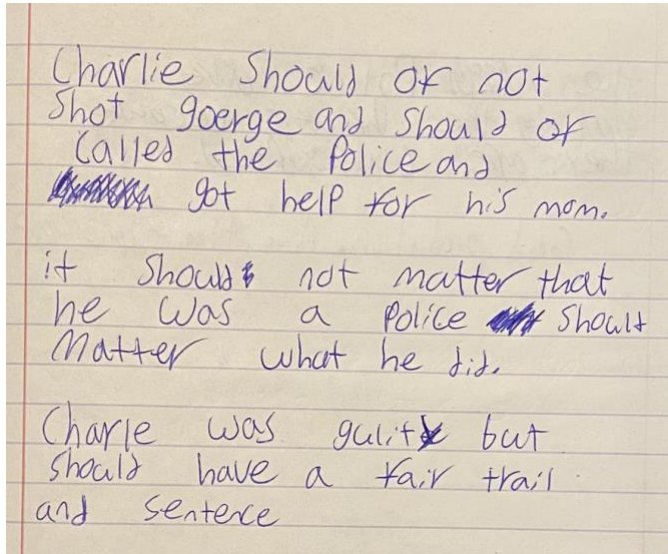 Charlie Should of not
Shot goerge and should of
Called the Police and
got help for his mom.
it should not matter that
he was a police should
Matter what he did.
Charle was gulity but
should have a fair trail
and sentence